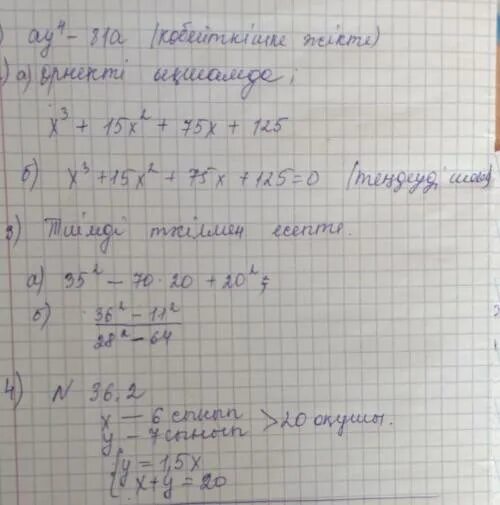 ) ay⁴ - 81a (көбейткішке жікте)
) а) өрнекті ықшамда;
x³ + 15x² + 75x + 125
б) x³ + 15x² + 75x + 125 = 0 (теңдеуді шеш)
3) Тиімді тәсілмен есепте.
а) 35² - 70·20 + 20²;
б) 36² - 11²
28² - 64
4) N 36.2
x — 6 сынып
y — 7 сынып > 20 оқушы.
{ y = 1,5x
x + y = 20